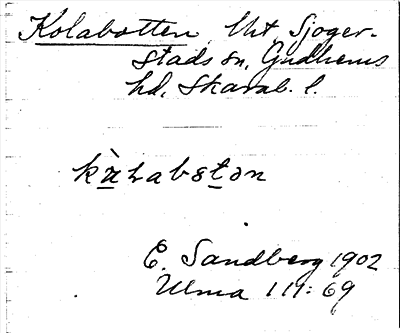 Kolabotten, Uht, Sjoger-
stads sn, Gudhems
hd, Skarab. l.
kɑ̀ɿabɞtən
E. Sandberg 1902
Ulma 111:69